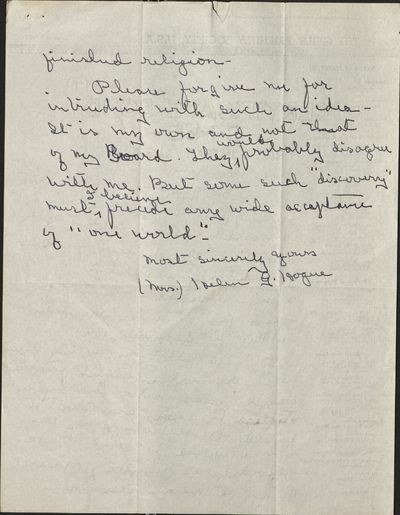 finished religion -
Please forgive me for
intruding with such an idea -
It is my own and not that
of my Board. They would probably disagree
with me. But some such "discovery"
must, I believe, precede any wide acceptance
of "one world".
Most sincerely yours
(Mrs.) Helen G. Hogue